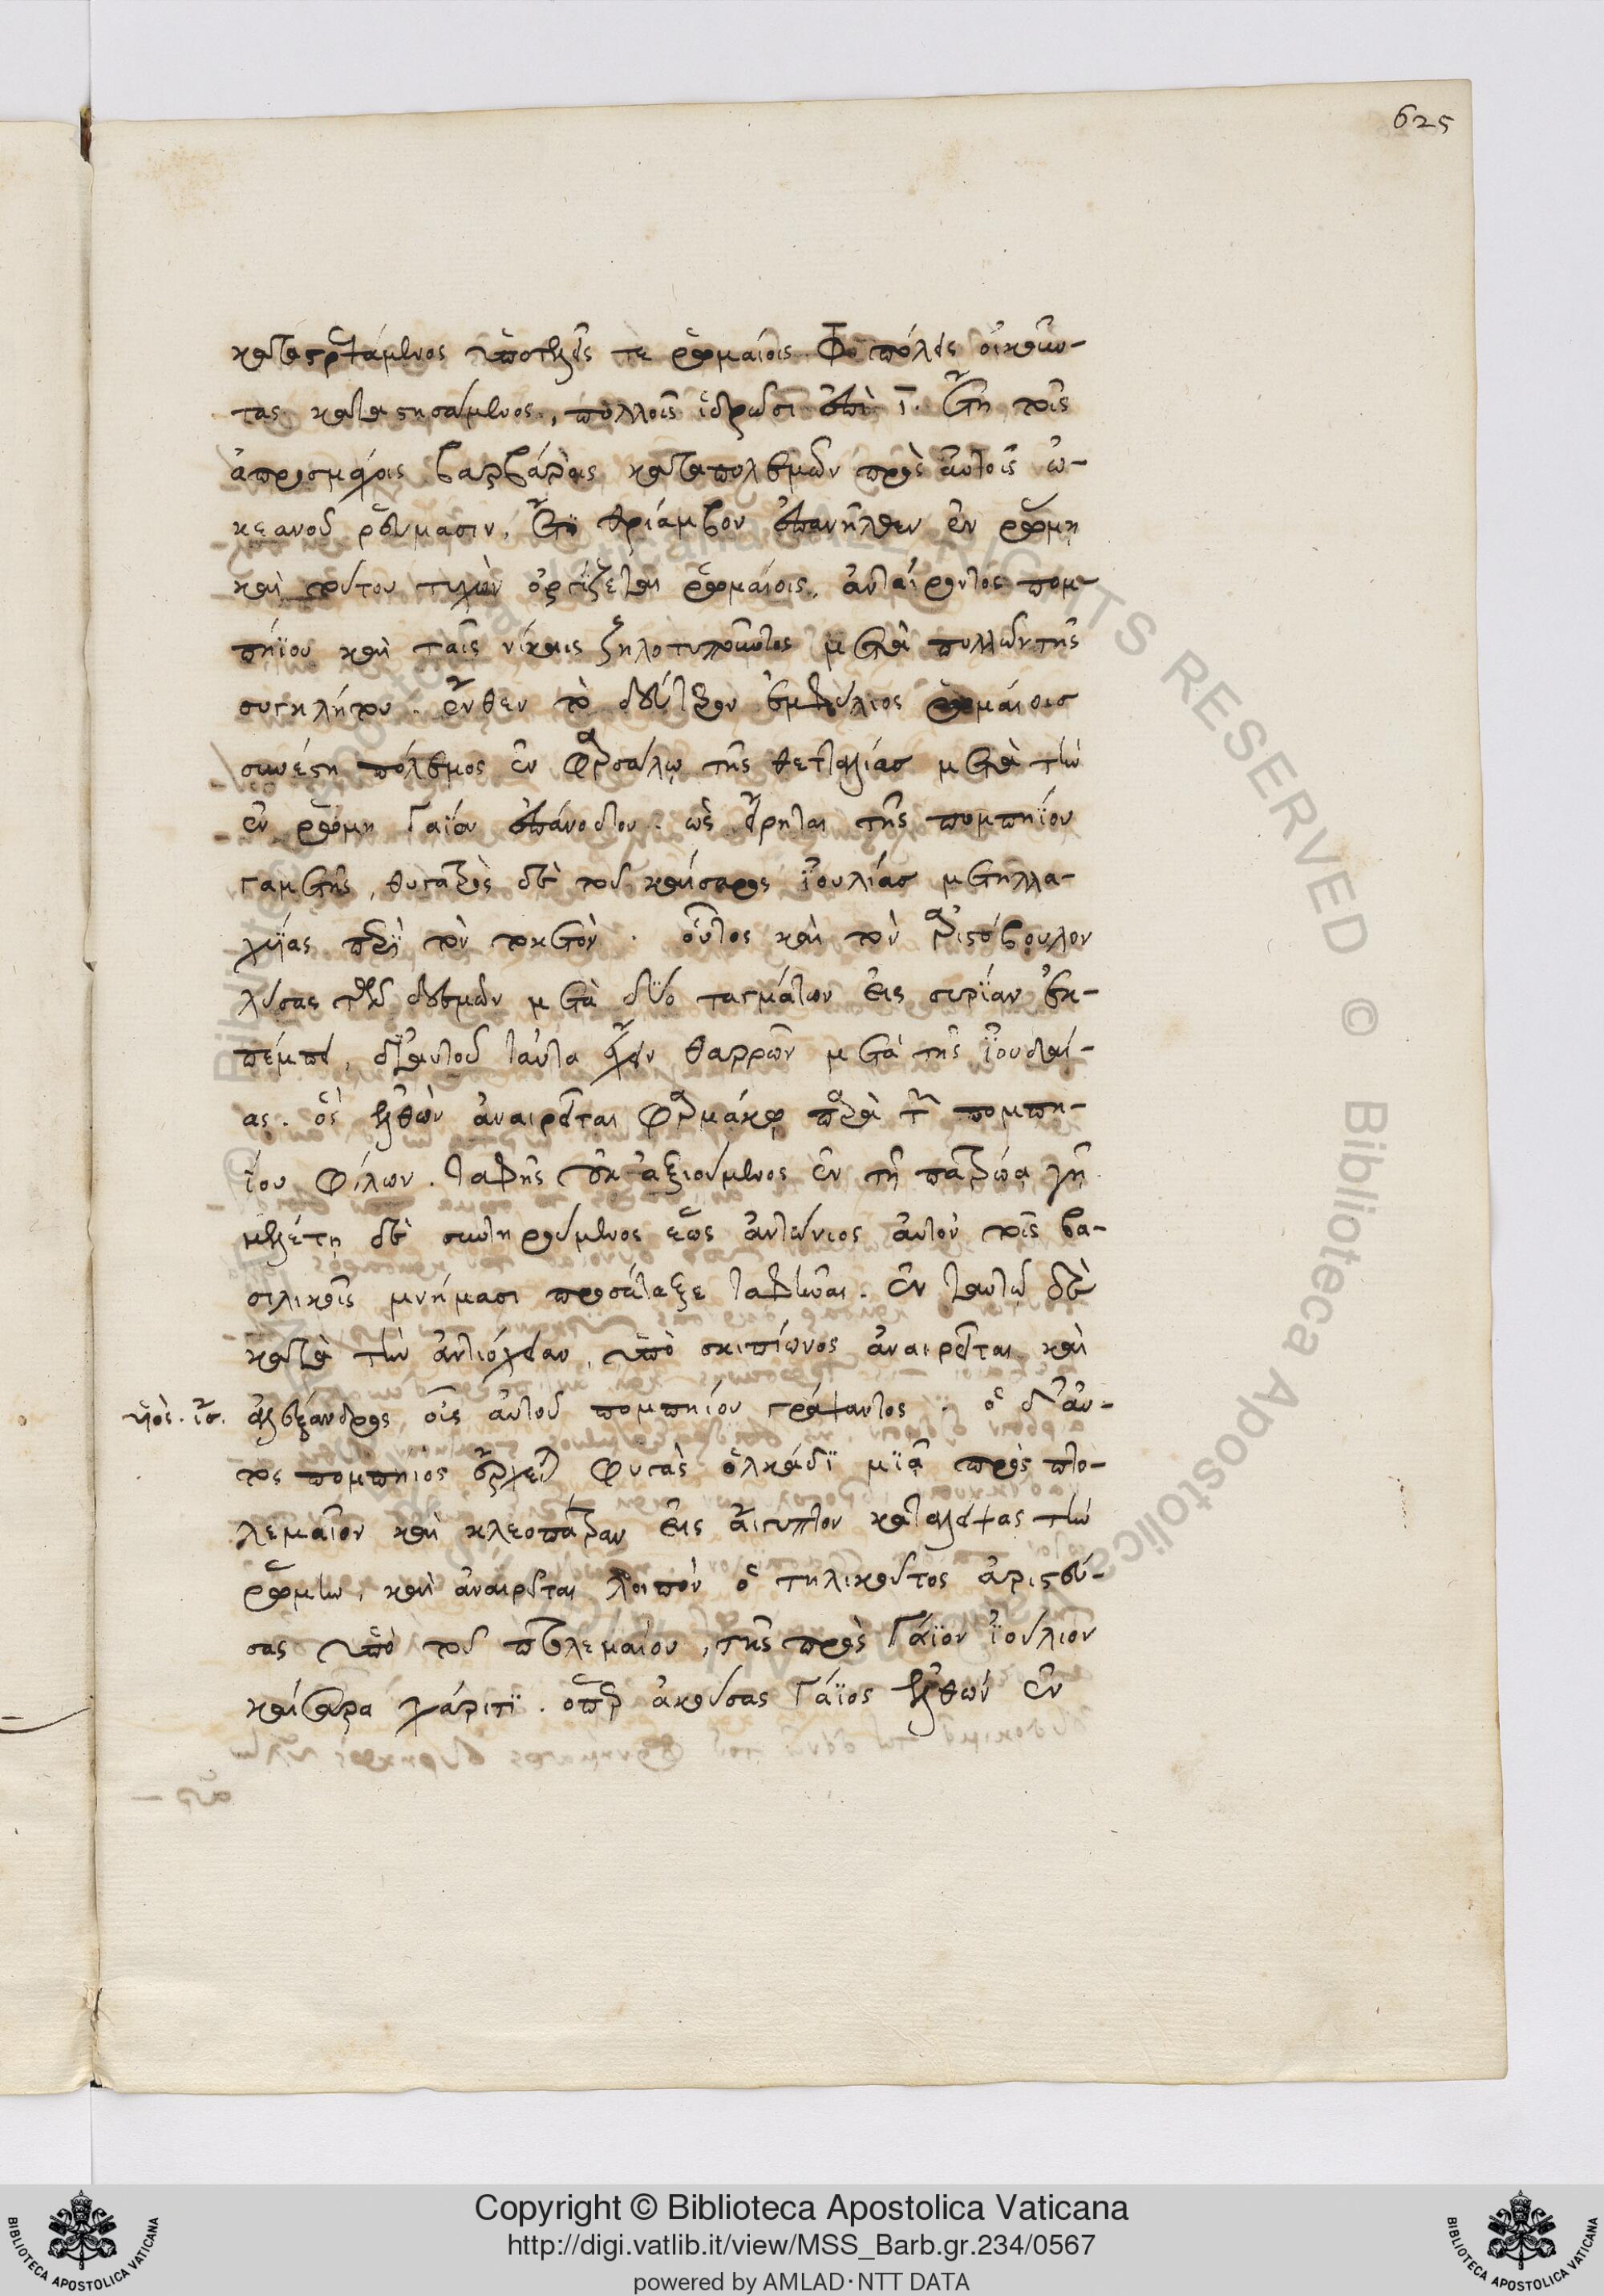 625
καταστρεψάμενος ὑποτελεῖς τε ῥωμαίοις. φ πόλεις οἰκοῦν-
τας καταστησάμενος, πολλοῖς ἱδρῶσι ἐπὶ ι ἔτη τοῖς
ἀπροσμάχοις βαρβάροις καταπολεμῶν πρὸς αὐτοῖς ὠ-
κεανοῦ ῥεύμασιν, ἐπανῆλθεν ἐν ῥώμῃ
καὶ τούτου τυχεῖν ὁρίζεται ῥωμαίοις, ἀνταίροντος πομ-
πηΐου καὶ ταῖς νίκαις ζηλοτυποῦντος μετὰ πολλῶν τῆς
συγκλήτου. ἔνθεν τὸ δεύτερον ἐμφύλιος ῥωμαίοισ
συνέστη πόλεμος ἐν φαρσάλῳ τῆς θετταλίασ μετὰ τὴν
ἐν ῥώμῃ Γαΐου ἐπάνοδον. ὡς εἴρηται τῆς πομπηΐου
γαμετῆς, θυγατρὸς δὲ τοῦ καίσαρος ἰουλίασ μετηλλα-
χυίας περὶ τὸν τοκετόν. οὗτος καὶ τὸν ἀριστόβουλον
λύσας τῶν δεσμῶν μετὰ δύο ταγμάτων εἰς συρίαν ἐκ-
πέμπει, δι' αὐτοῦ ταύτα ἔχειν θαρρῶν μετὰ τῆς ἰουδαί-
ας. ὃς ἐλθὼν ἀναιρεῖται φαρμάκῳ παρὰ τῶν πομπη-
ΐου φίλων. ταφῆς οὐκ ἀξιούμενος ἐν τῇ πατρώᾳ γῇ
μέλιτι δὲ συντηρούμενος ἕως ἀντώνιος αὐτὸν τοῖς βα-
σιλικοῖς μνήμασι προσέταξε ταφῆναι. ἐν ταυτῷ δὲ
κατὰ τὴν ἀντιόχειαν, ὑπὸ σκιπίωνος ἀναιρεῖται καὶ
ἀλέξανδρος, υἱὸς αὐτοῦ πομπηΐου γράψαντος. ὁ δ' αὐ-
τος πομπήϊος ἔρχεται φυγὰς ὁλκάδϊ μϊᾷ πρὸς πτο-
λεμαῖον καὶ κλεοπάτραν εἰς αἴγυπτον καταλείψας τὴν
ῥώμην, καὶ ἀναιρεῖται λοιπὸν ὁ τηλικοῦτος ἀριστεύ-
σας ὑπὸ τοῦ πτολεμαίου, τῆς πρὸς Γάϊον ἰούλιον
καίσαρα χάριτϊ. ὅπερ ἀκούσας Γάϊος ἐλθὼν ἐν
Copyright © Biblioteca Apostolica Vaticana
http://digi.vatlib.it/view/MSS_Barb.gr.234/0567
powered by AMLAD·NTT DATA